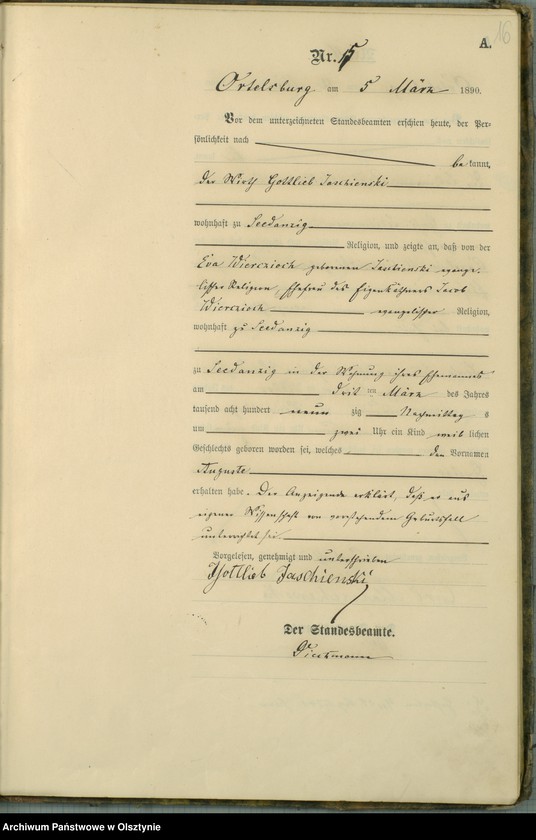 16
A.
Nr.
Ortelsburg am 5 März 1890.
Vor dem unterzeichneten Standesbeamten erschien heute, der Per-
sönlichkeit nach
be kannt,
der Wirth Gottlieb Jaschienski
wohnhaft zu Seedanzig
Religion, und zeigte an, daß von der
Eva Wierczioch geborenen evange-
lischer Religion, Ehefrau des Eigenkäthners Jacob
Wierczioch evangelischer Religion,
wohnhaft zu Seedanzig
zu Seedanzig in der Wohnung ihres Ehemannes
am drit ten März des Jahres
tausend acht hundert neun zig Nachmittag s
um zwei Uhr ein Kind weib lichen
Geschlechts geboren worden sei, welches den Vornamen
Auguste
erhalten habe. Der Anzeigende erklärt, daß er aus
eigener Wissenschaft von vorstehendem Geburtsfall
unterrichtet sei.
Vorgelesen, genehmigt und unterschrieben
Gottlieb Jaschienski
Der Standesbeamte.
Archiwum Państwowe w Olsztynie